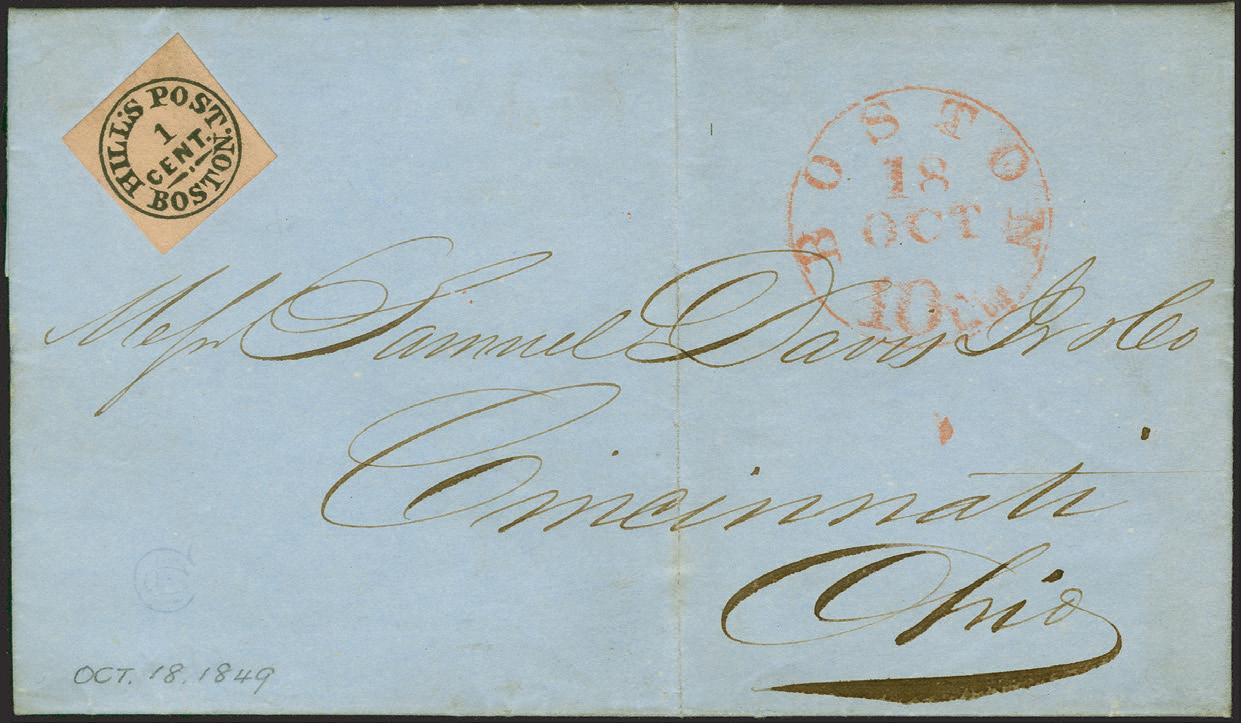 HILL'S POST. BOSTON
1
CENT.
BOSTON
18
OCT
10 cts
Messrs Samuel Davis Jr & Co
Cincinnati
Ohio
OCT. 18. 1849